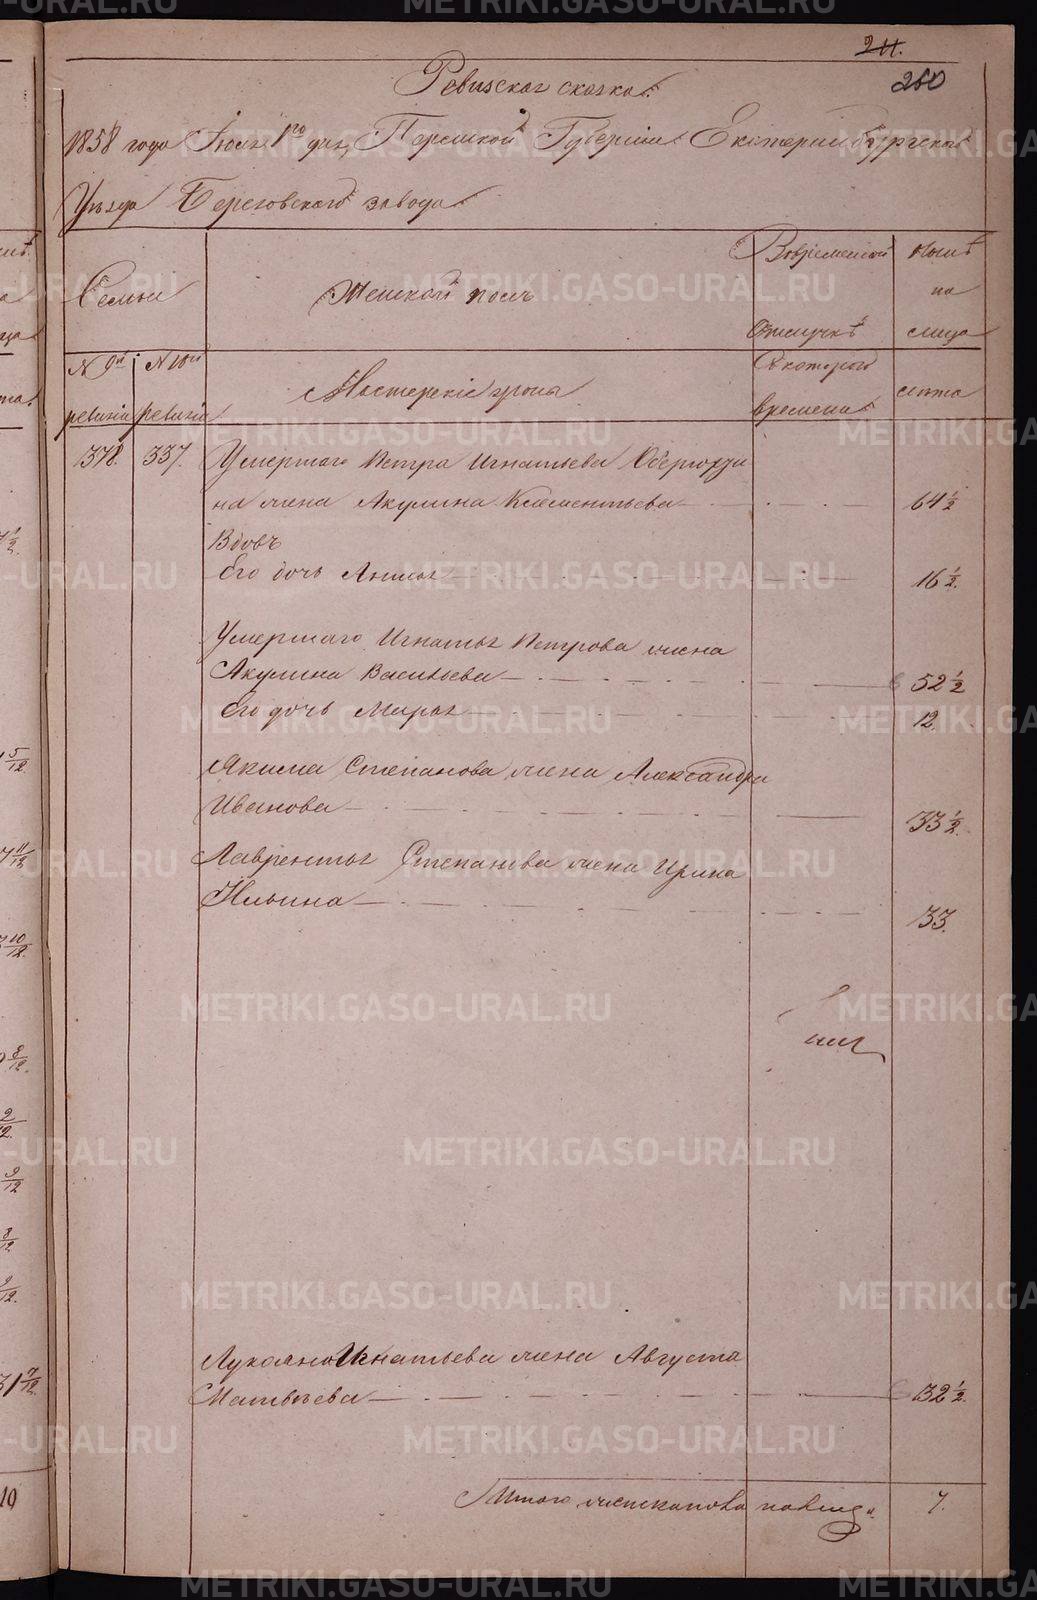 211.
260
Ревизская сказка.
1858 года Июля 1го дня, Пермской Губернии Екатеринбургскаго
Уезда Березовскаго завода
Семьи
Женской полъ
Вовременной
отлучкѣ
ныне
на
лицо
N 9й
ревизіи
N 10й
ревизіи
Мастерскіе
Скотораго
времени
лѣта
378.
337.
Умершаго Петра Игнатьева Обертюхи
на жена Акулина Клементьева
64 ½
Вдовъ
Его дочь Анна
16 ½.
Умершаго Игнатья Петрова жена
Акулина Васильева
52 ½
Его дочь Марья
12.
Якима Степанова жена Александра
Иванова
33 ½.
Лаврентья Степанова жена Ирина
Ильина
33.
Лукояна Игнатьева жена Августа
Матвѣева
32 ½.
Итого женскапола налицо
7.
½
5/12
11/12
10/12
8/12
2/12
9/12
8/12
31 7/12
19
METRIKI.GASO-URAL.RU